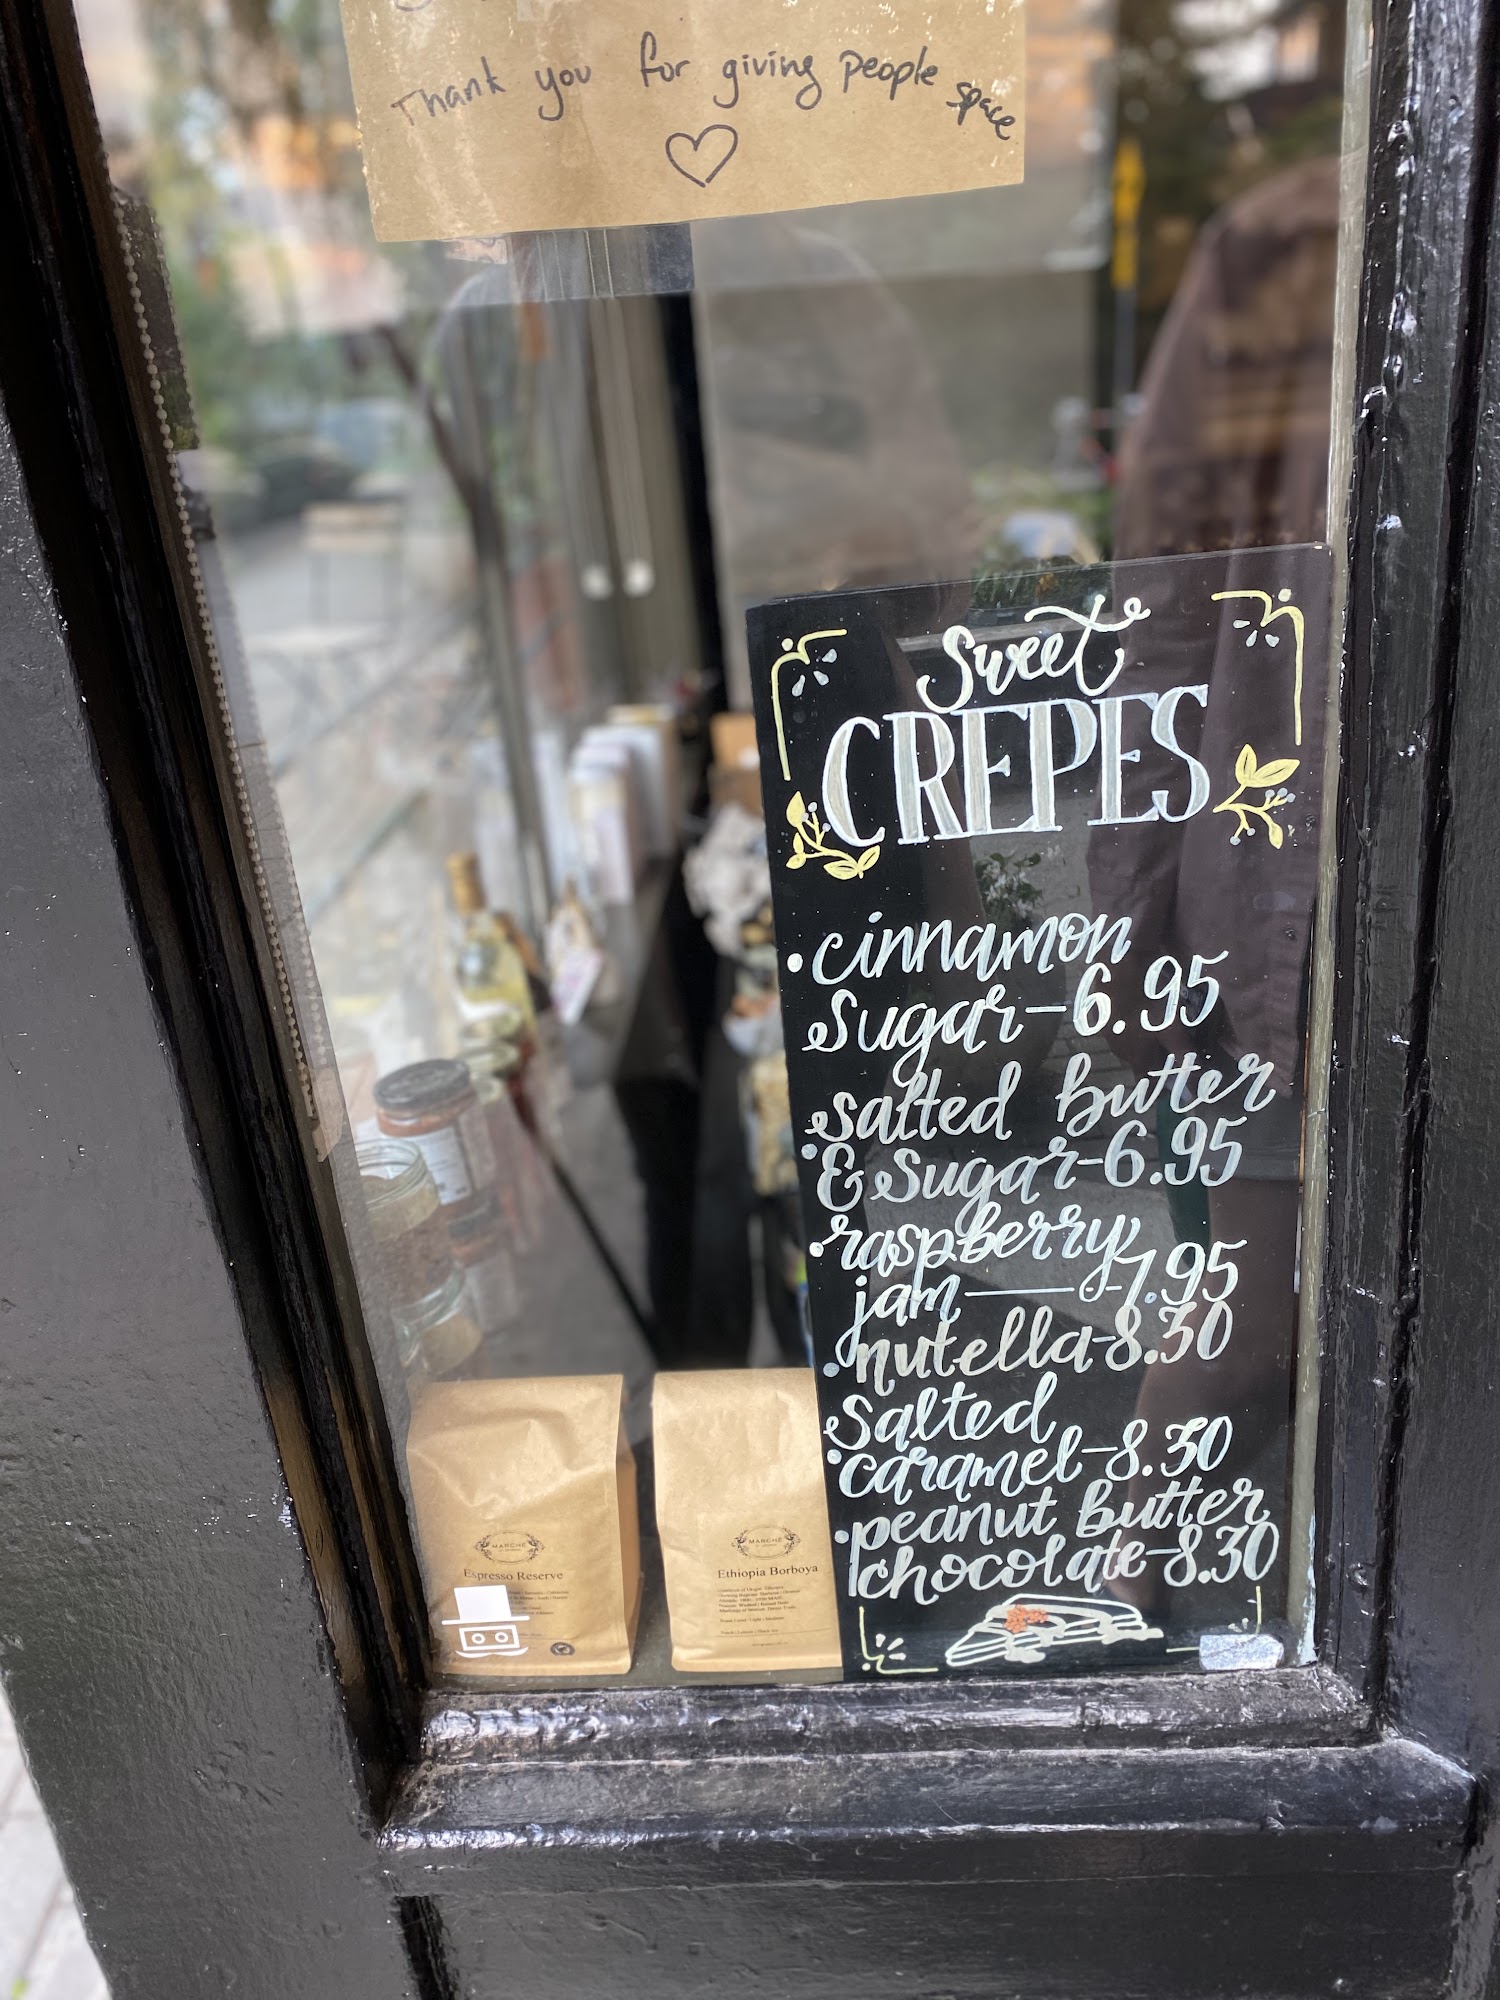 Thank you for giving people space
Sweet
CREPES
cinnamon
sugar-6.95
salted butter
& sugar-6.95
raspberry
jam-7.95
nutella-8.50
salted
caramel-8.50
peanut butter
chocolate-8.50
MARCHÉ
Espresso Reserve
MARCHÉ
Ethiopia Borboya